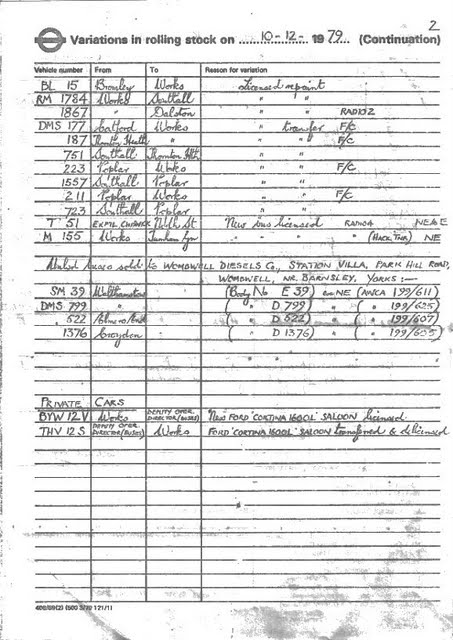 2
Variations in rolling stock on 10-12- 1979 (Continuation)
Vehicle number From To Reason for variation
BL 15 Bromley Works Licensed repaint
RM 1784 Works Southall " "
1867 " Dalston " " RADIO 2
DMS 177 Catford Works " transfer F/C
187 Thornton Heath " " " F/C
751 Southall Thornton Hth " "
223 Poplar Works " " F/C
1557 Southall Poplar " "
211 Poplar Works " " F/C
723 Southall Poplar " "
T 51 EXPTL. CHISWICK North St New bus licensed NE&E
M 155 Works " " " NE
sold to WOMBWELL DIESELS Co., STATION VILLA, PARK HILL ROAD,
WOMBWELL, NR. BARNSLEY, YORKS :-
SM 39 Walthamstow (Body No E 39) NE (AWCA 199/611)
DMS 799 " ( " D 799) " ( " 199/625)
522 ( " D 522) " ( " 199/607)
1376 Croydon ( " D 1376) " ( " 199/605)
PRIVATE CARS
BYW 12V Works DEPUTY OPER. DIRECTOR (BUSES) New FORD 'CORTINA 1600L' SALOON licensed.
THV 12S DEPUTY OPER. DIRECTOR (BUSES) Works FORD 'CORTINA 1600L' SALOON transferred & delicensed